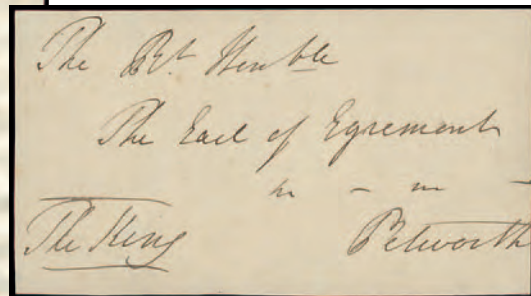 The Rt. Honble
The Earl of Egremont
The King
Petworth